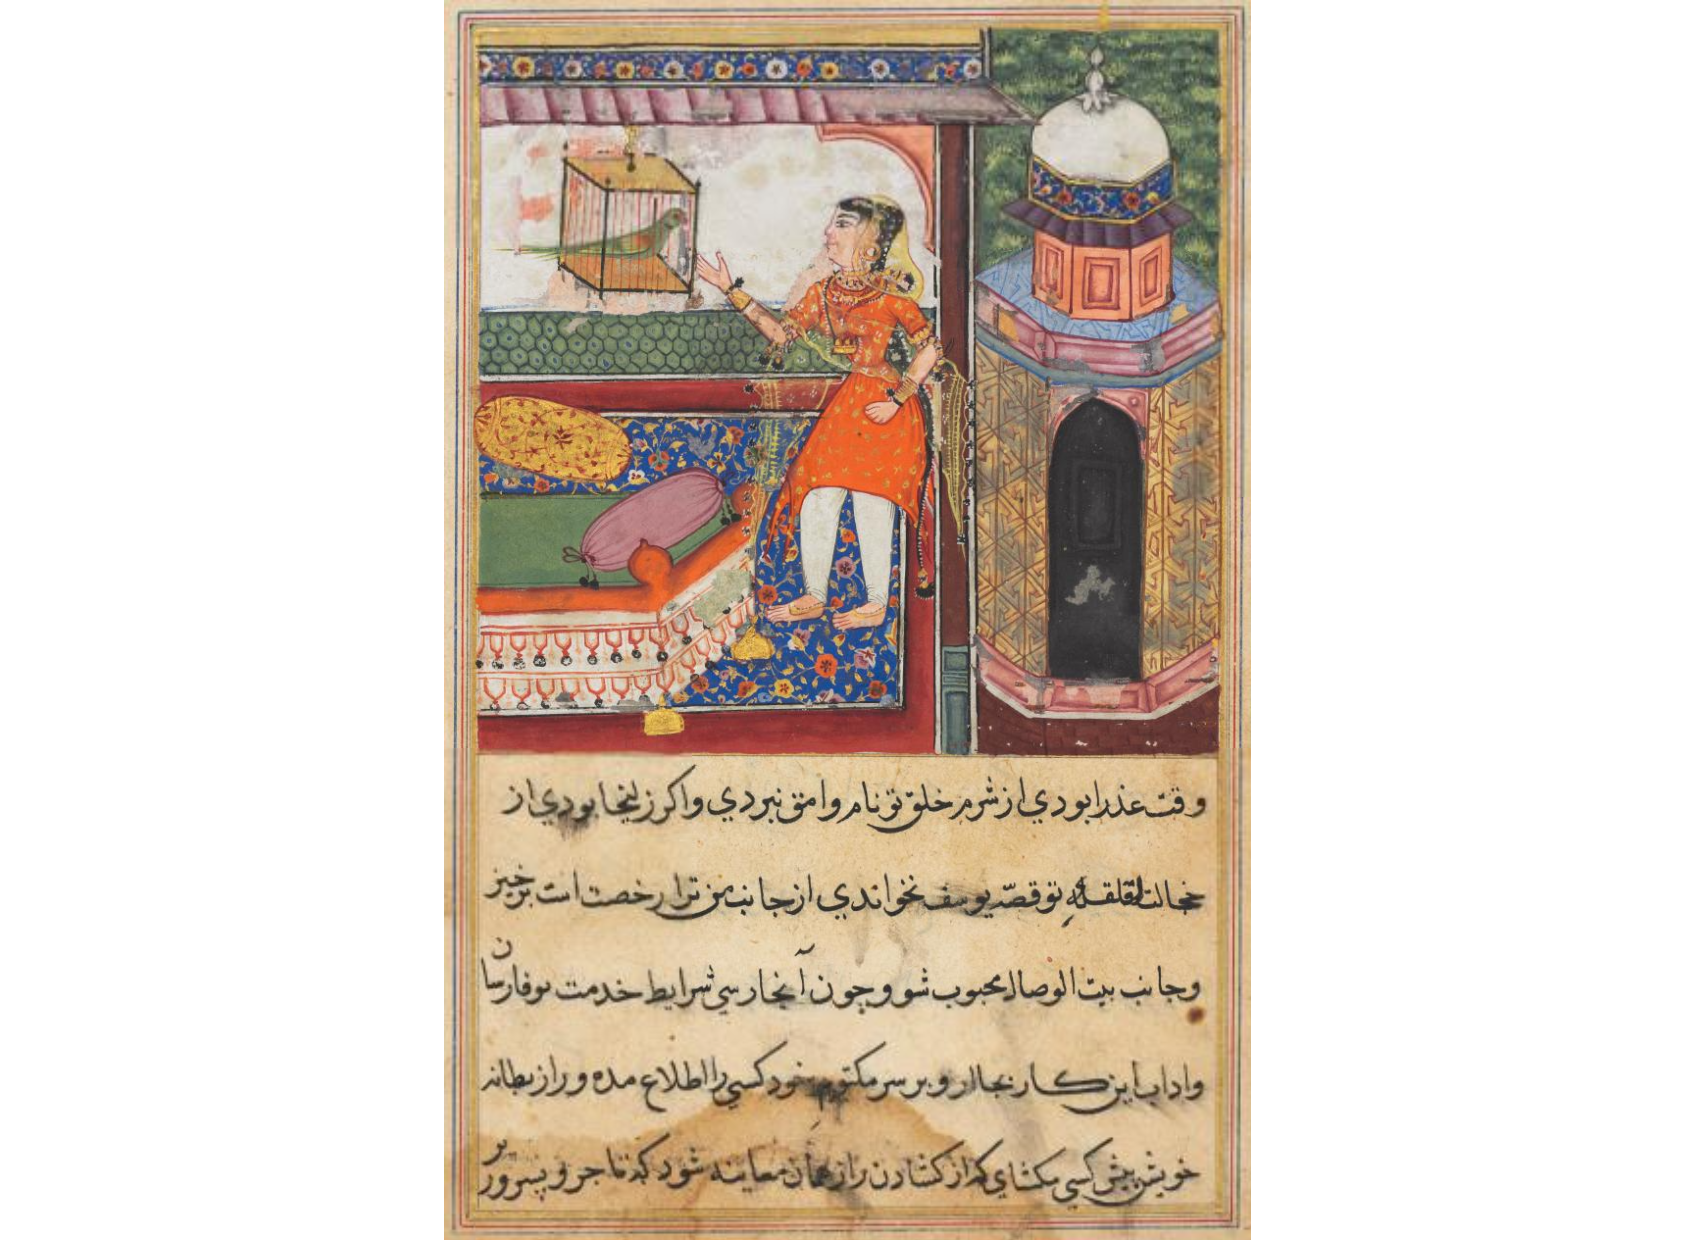 وقت عذرا بودي از شرم خلق تو نام وامق نبردي واكر زليخا بودي از
خجالت قلقله تو قصّه يوسف نخواندي از جانب من ترا رخصت است برخيز
وجانب بيت الوصال محبوب شو وچون آنجا رسي شرايط خدمت
واداب اين كار بجا ار و بر سر مكتوم خود كسي را اطلاع مده و راز بطانه
خويش پيش كسي مكشاي كه از كشادن راز همان معاينه شود كه تاجر و پسر